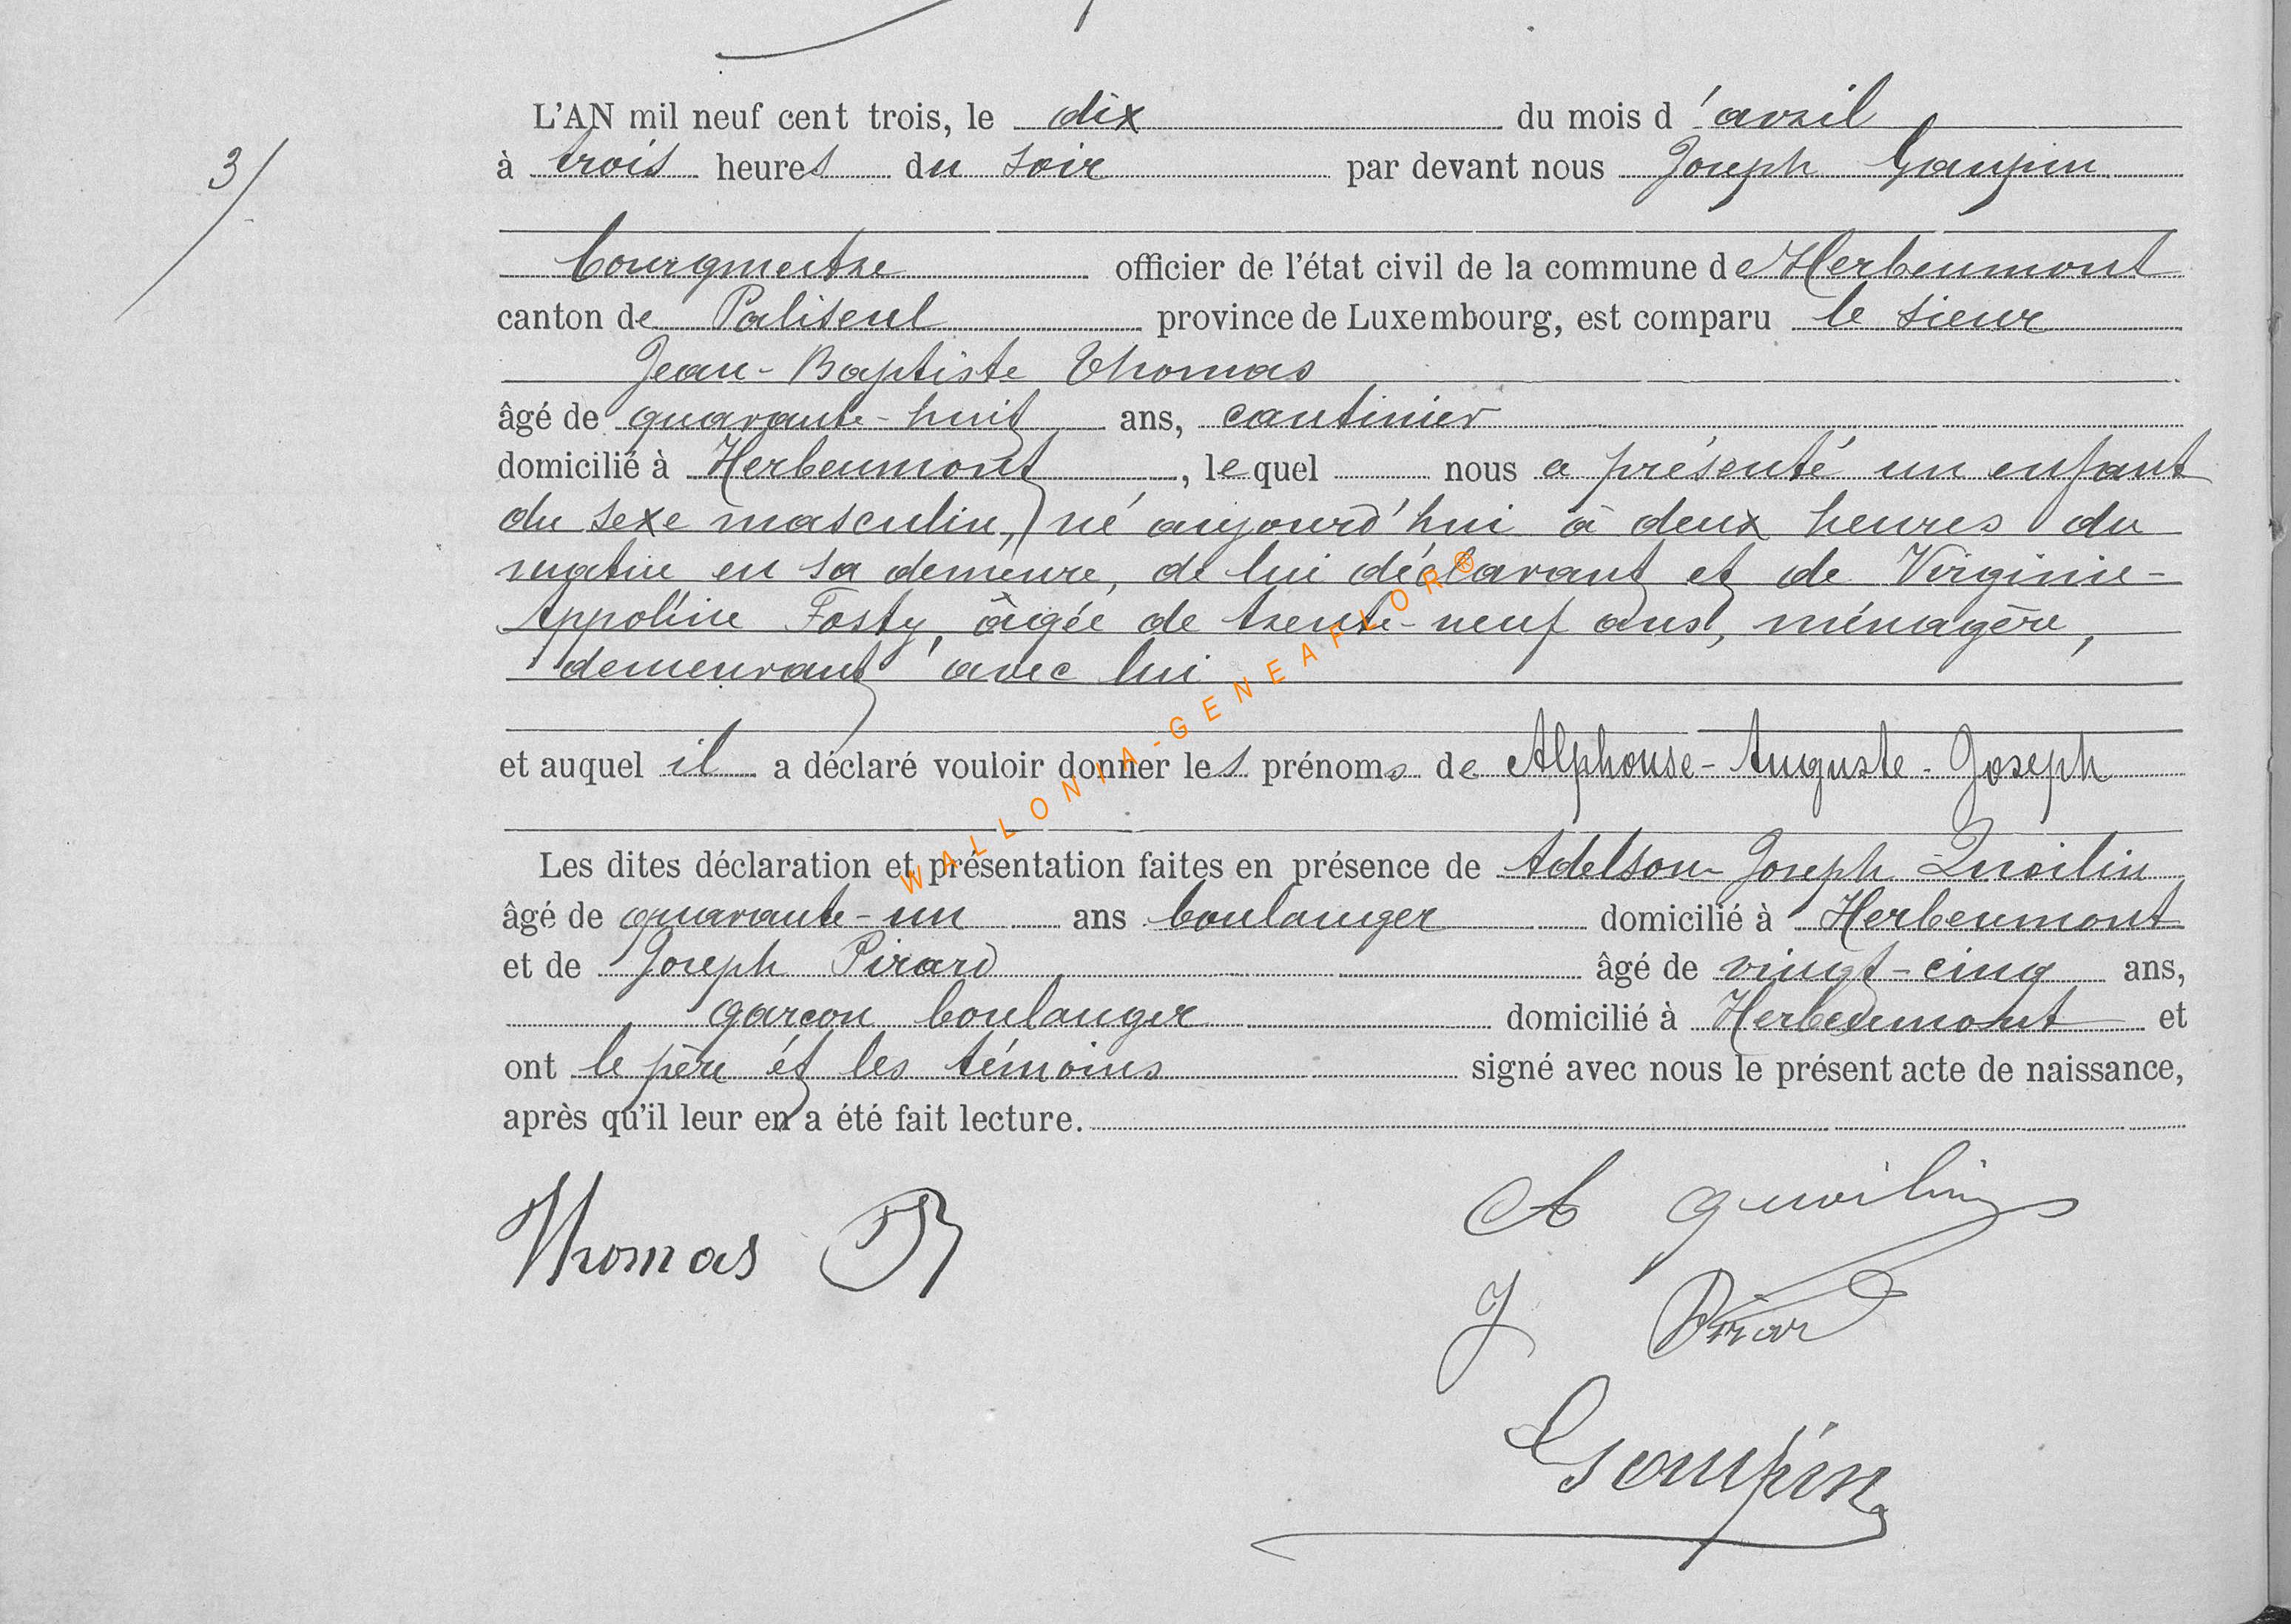 L'AN mil neuf cent trois, le dix du mois d'avril
3/
à trois heures du soir par devant nous Joseph Gaupin
bourgmestre officier de l'état civil de la commune de Herbeumont
canton de Paliseul province de Luxembourg, est comparu le sieur
Jean-Baptiste Thomas
âgé de quarante-huit ans, cantinier
domicilié à Herbeumont, lequel nous a présenté un enfant
du sexe masculin, né aujourd'hui à deux heures du
matin en sa demeure, de lui déclarant et de Virginie-
Appoline Fosty, âgée de trente-neuf ans, ménagère,
demeurant avec lui
et auquel il a déclaré vouloir donner les prénoms de Alphonse-Auguste-Joseph
Les dites déclaration et présentation faites en présence de Adelson-Joseph Quoilin
âgé de quarante-un ans boulanger domicilié à Herbeumont
et de Joseph Pirard âgé de vingt-cinq ans,
garçon boulanger domicilié à Herbeumont et
ont le père et les témoins signé avec nous le présent acte de naissance,
après qu'il leur en a été fait lecture.
Thomas JB
A Quoilin
J Pirard
Gaupin
WALLONIA-GENEAFLOR®